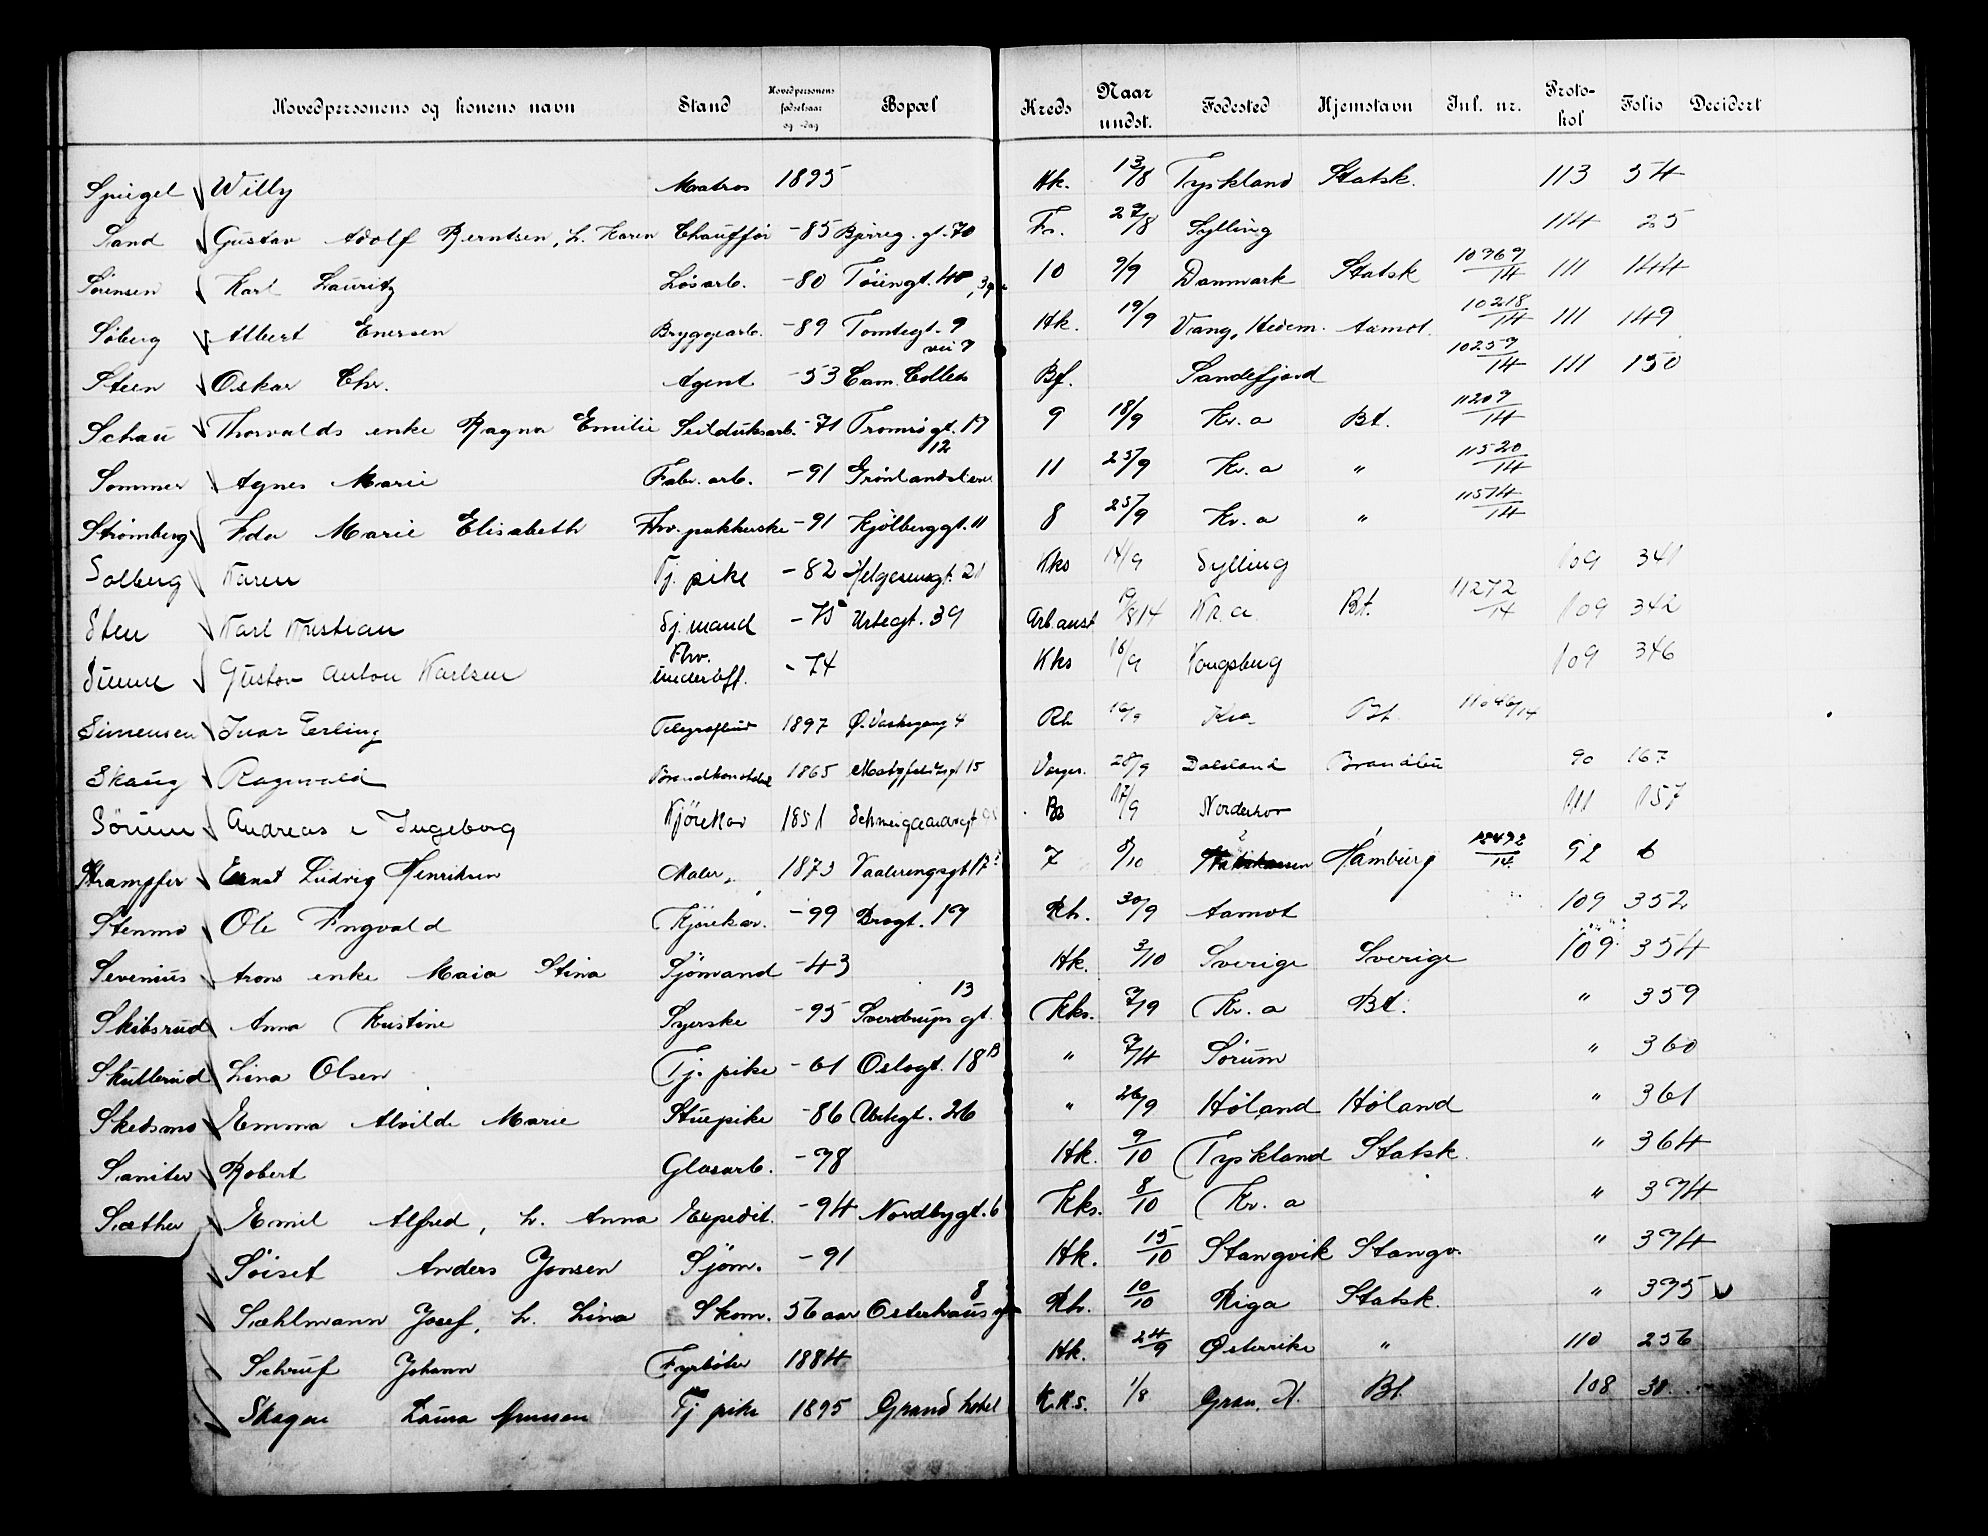 Hovedpersonens og konens navn Stand Hovedpersonens fødselsaar og -dag Bopæl Kreds Naar undst. Fødested Hjemstavn Inl. nr. Protokol Folio Decidert
Spiegel Willy Matros 1895 Hk. 13/8 Tyskland Statsk. 113 54
Sand Gustav Adolf Berntsen, h. Karen Chauffør -85 Bjerreg. gt. 70 Fr. 27/8 Sylling 114 25
Sørensen Karl Lauritz Løsarb. -80 Tøiengt. 40 10 9/9 Danmark Statsk 10969/14 111 144
Søberg Albert Enersen Bryggearb. -89 Tomtegt. 9 Hk. 19/9 Vang, Hedem. Aamot. 10218/14 111 149
Steen Oskar Chr. Agent -53 Cam. Colletts vei 7 Bf. Sandefjord 10259/14 111 150
Schau Thorvalds enke Ragna Emilie Seilduksarb. -71 Tromsøgt. 17 9 18/9 Kr.a Bt. 11209/14
Sommer Agnes Marie Fabr. arb. -91 Grønlandsleret 12 11 25/9 Kr.a " 11520/14
Strømberg Ida Marie Elisabeth Fhv. pakkerske -91 Kjølberggt. 11 8 25/9 Kr.a " 11574/14
Solberg Karen Tj. pike -82 Helgesensgt. 21 Kks 14/9 Sylling 109 341
Sten Karl Kristian Sj.mand -75 Urtegt. 39 Arb.anst 19/8 14 Kr.a. Bt. 11272/14 109 342
Sunne Gustav Anton Karlsen Fhv. underoff. -74 Kks 16/9 Kongsberg 109 346
Simensen Ivar Erling Telegrafbud 1897 Ø. Vaskegang 4 Rh 16/9 Kra Bt. 11046/14
Skaug Ragnvald Brandkonstabel 1865 15 Varger. 28/9 Dalsland Brandbu 90 167
Sörum Andreas e Ingeborg Kjörekar 1851 Schweigaardsgt Bb 17/9 Norderhov 111 157
Strampfer Ernst Ludvig Henriksen Maler 1873 Vaalerengsgt 17 7 8/10 Hamburg 12492/14 92 6
Stenmo Ole Ingvald Kjørekar. -99 Brogt. 19 Rh. 30/9 Aamot 109 352
Sevenius Arons enke Maia Stina Sjömand -43 Hk. 3/10 Sverige Sverige 109. 354
Skibsrud Anna Kristine Syerske -95 Sverdrups gt. 13 Kks. 7/9 Kr. a Bt. " 359
Skullerud Lina Olsen Tj. pike -61 Oslogt. 18B " 7/4 Sørum " 360
Skedsmo Emma Alvilde Marie Stuepike -86 Urtegt. 26 " 26/9 Høland Høland " 361
Saniter Robert Glasarb. -78 Hk. 9/10 Tyskland Statsk. " 364
Sæther Emil Alfred, h. Anna Expedit. -94 Nordbygt. 6 Kks. 8/10 Kr. a " 374
Söiset Anders Jonsen Sjöm. -91 Hk. 15/10 Stangvik Stangv. " 374
Sæhlmann Josef, h. Lina Skom. 56 aar Osterhaus gt 8 Rh. 10/10 Riga Statsk. " 375
Schruf Johann Fyrbøter 1884 Hk. 24/9 Østerrike " 110 256
Skagen Laura Tj pike 1895 Grand hotel K.K.s. 1/8 Gran, H. Bt. 108 38